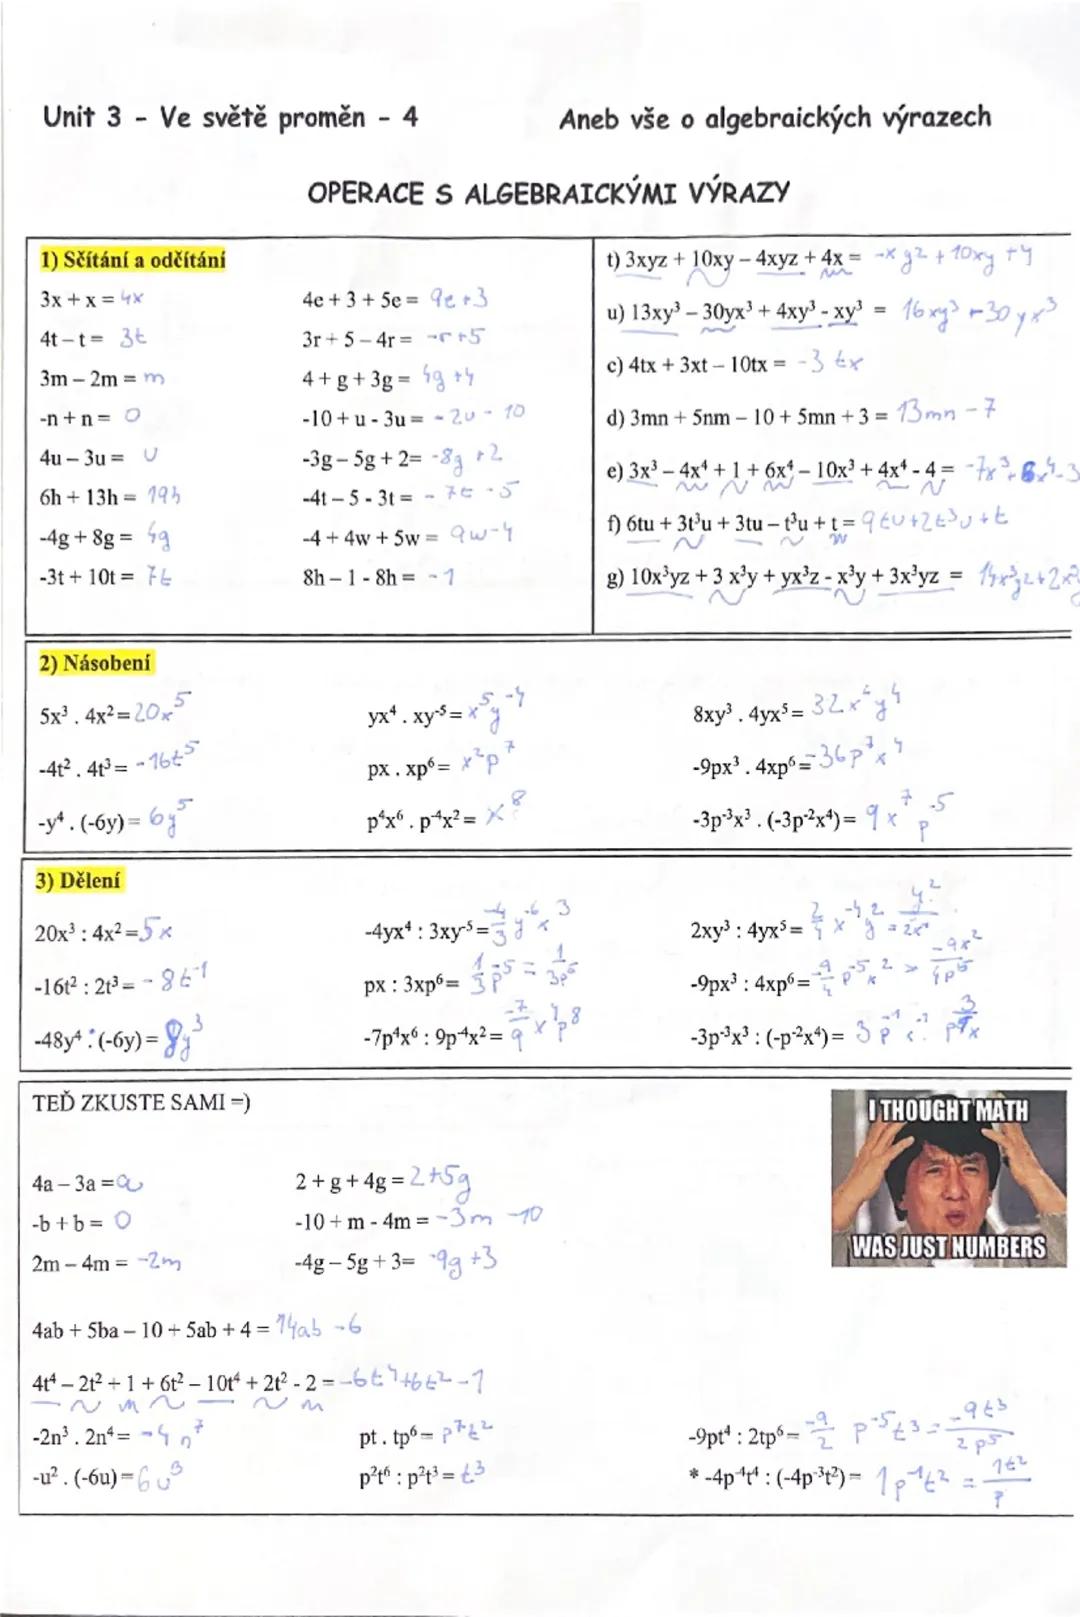 Unit 3 - Ve světě proměn - 4 Aneb vše o algebraických výrazech
OPERACE S ALGEBRAICKÝMI VÝRAZY
1) Sčítání a odčítání
3x + x = 4x
4t – t = 3t
3m – 2m = m
-n + n = 0
4u – 3u = u
6h + 13h = 19h
-4g + 8g = 4g
-3t + 10t = 7t
4e + 3 + 5e = 9e+3
3r + 5 – 4r = -r+5
4 + g + 3g = 4g+4
-10 + u - 3u = -2u - 10
-3g – 5g + 2= -8g+2
-4t – 5 - 3t = -7t -5
-4 + 4w + 5w = 9w-4
8h – 1 - 8h = -1
t) 3xyz + 10xy – 4xyz + 4x = -xyz + 10xy +4
u) 13xy³ – 30yx³ + 4xy³ - xy³ = 16xy³ - 30yx³
c) 4tx + 3xt – 10tx = -3tx
d) 3mn + 5nm – 10 + 5mn + 3 = 13mn - 7
e) 3x³ – 4x⁴ + 1 + 6x⁴ – 10x³ + 4x⁴ - 4 = -7x³+6x⁴-3
f) 6tu + 3t³u + 3tu – t³u + t = 9tu+2t³u+t
g) 10x³yz + 3 x³y + yx³z - x³y + 3x³yz = 14x³yz+2x³
2) Násobení
5x³ . 4x² = 20x⁵
-4t² . 4t³ = -16t⁵
-y⁴ . (-6y) = 6y⁵
yx⁴ . xy⁻⁵ = x⁵y⁻⁴
px . xp⁶ = x²p⁷
p⁴x⁶ . p⁻⁴x² = x⁸
8xy³ . 4yx⁵ = 32x y⁴
-9px³ . 4xp⁶ = -36p⁷x⁴
-3p⁻³x³ . (-3p⁻²x⁴) = 9x⁷p⁻⁵
3) Dělení
20x³ : 4x² = 5x
-16t² : 2t³ = -8t⁻¹
-48y⁴ : (-6y) = 8y³
-4yx⁴ : 3xy⁻⁵ = -4/3 y⁻⁶x³
px : 3xp⁶ = 1/3 p⁻⁵ = 1/3p⁵
-7p⁴x⁶ : 9p⁻⁴x² = -7/9 x⁴p⁸
2xy³ : 4yx⁵ = 2/4 x⁻⁴y² = y²/2x⁴
-9px³ : 4xp⁶ = -9/4 p⁻⁵x² = -9x²/4p⁵
-3p⁻³x³ : (-p⁻²x⁴) = 3p⁻¹x⁻¹
TEĎ ZKUSTE SAMI =)
4a – 3a = a
-b + b = 0
2m – 4m = -2m
2 + g + 4g = 2+5g
-10 + m - 4m = -3m -10
-4g – 5g + 3= -9g+3
I THOUGHT MATH
WAS JUST NUMBERS
4ab + 5ba – 10 + 5ab + 4 = 14ab -6
4t⁴ – 2t² + 1 + 6t² – 10t⁴ + 2t² - 2 = -6t⁴+6t²-1
-2n³ . 2n⁴ = -4n⁷
-u² . (-6u) = 6u³
pt . tp⁶ = p⁷t²
p²t⁶ : p²t³ = t³
-9pt⁴ : 2tp⁶ = -9/2 p⁻⁵t³ = -9t³/2p⁵
* -4p⁻⁴t⁴ : (-4p⁻³t²) = 1p⁻¹t² = 1t²/p